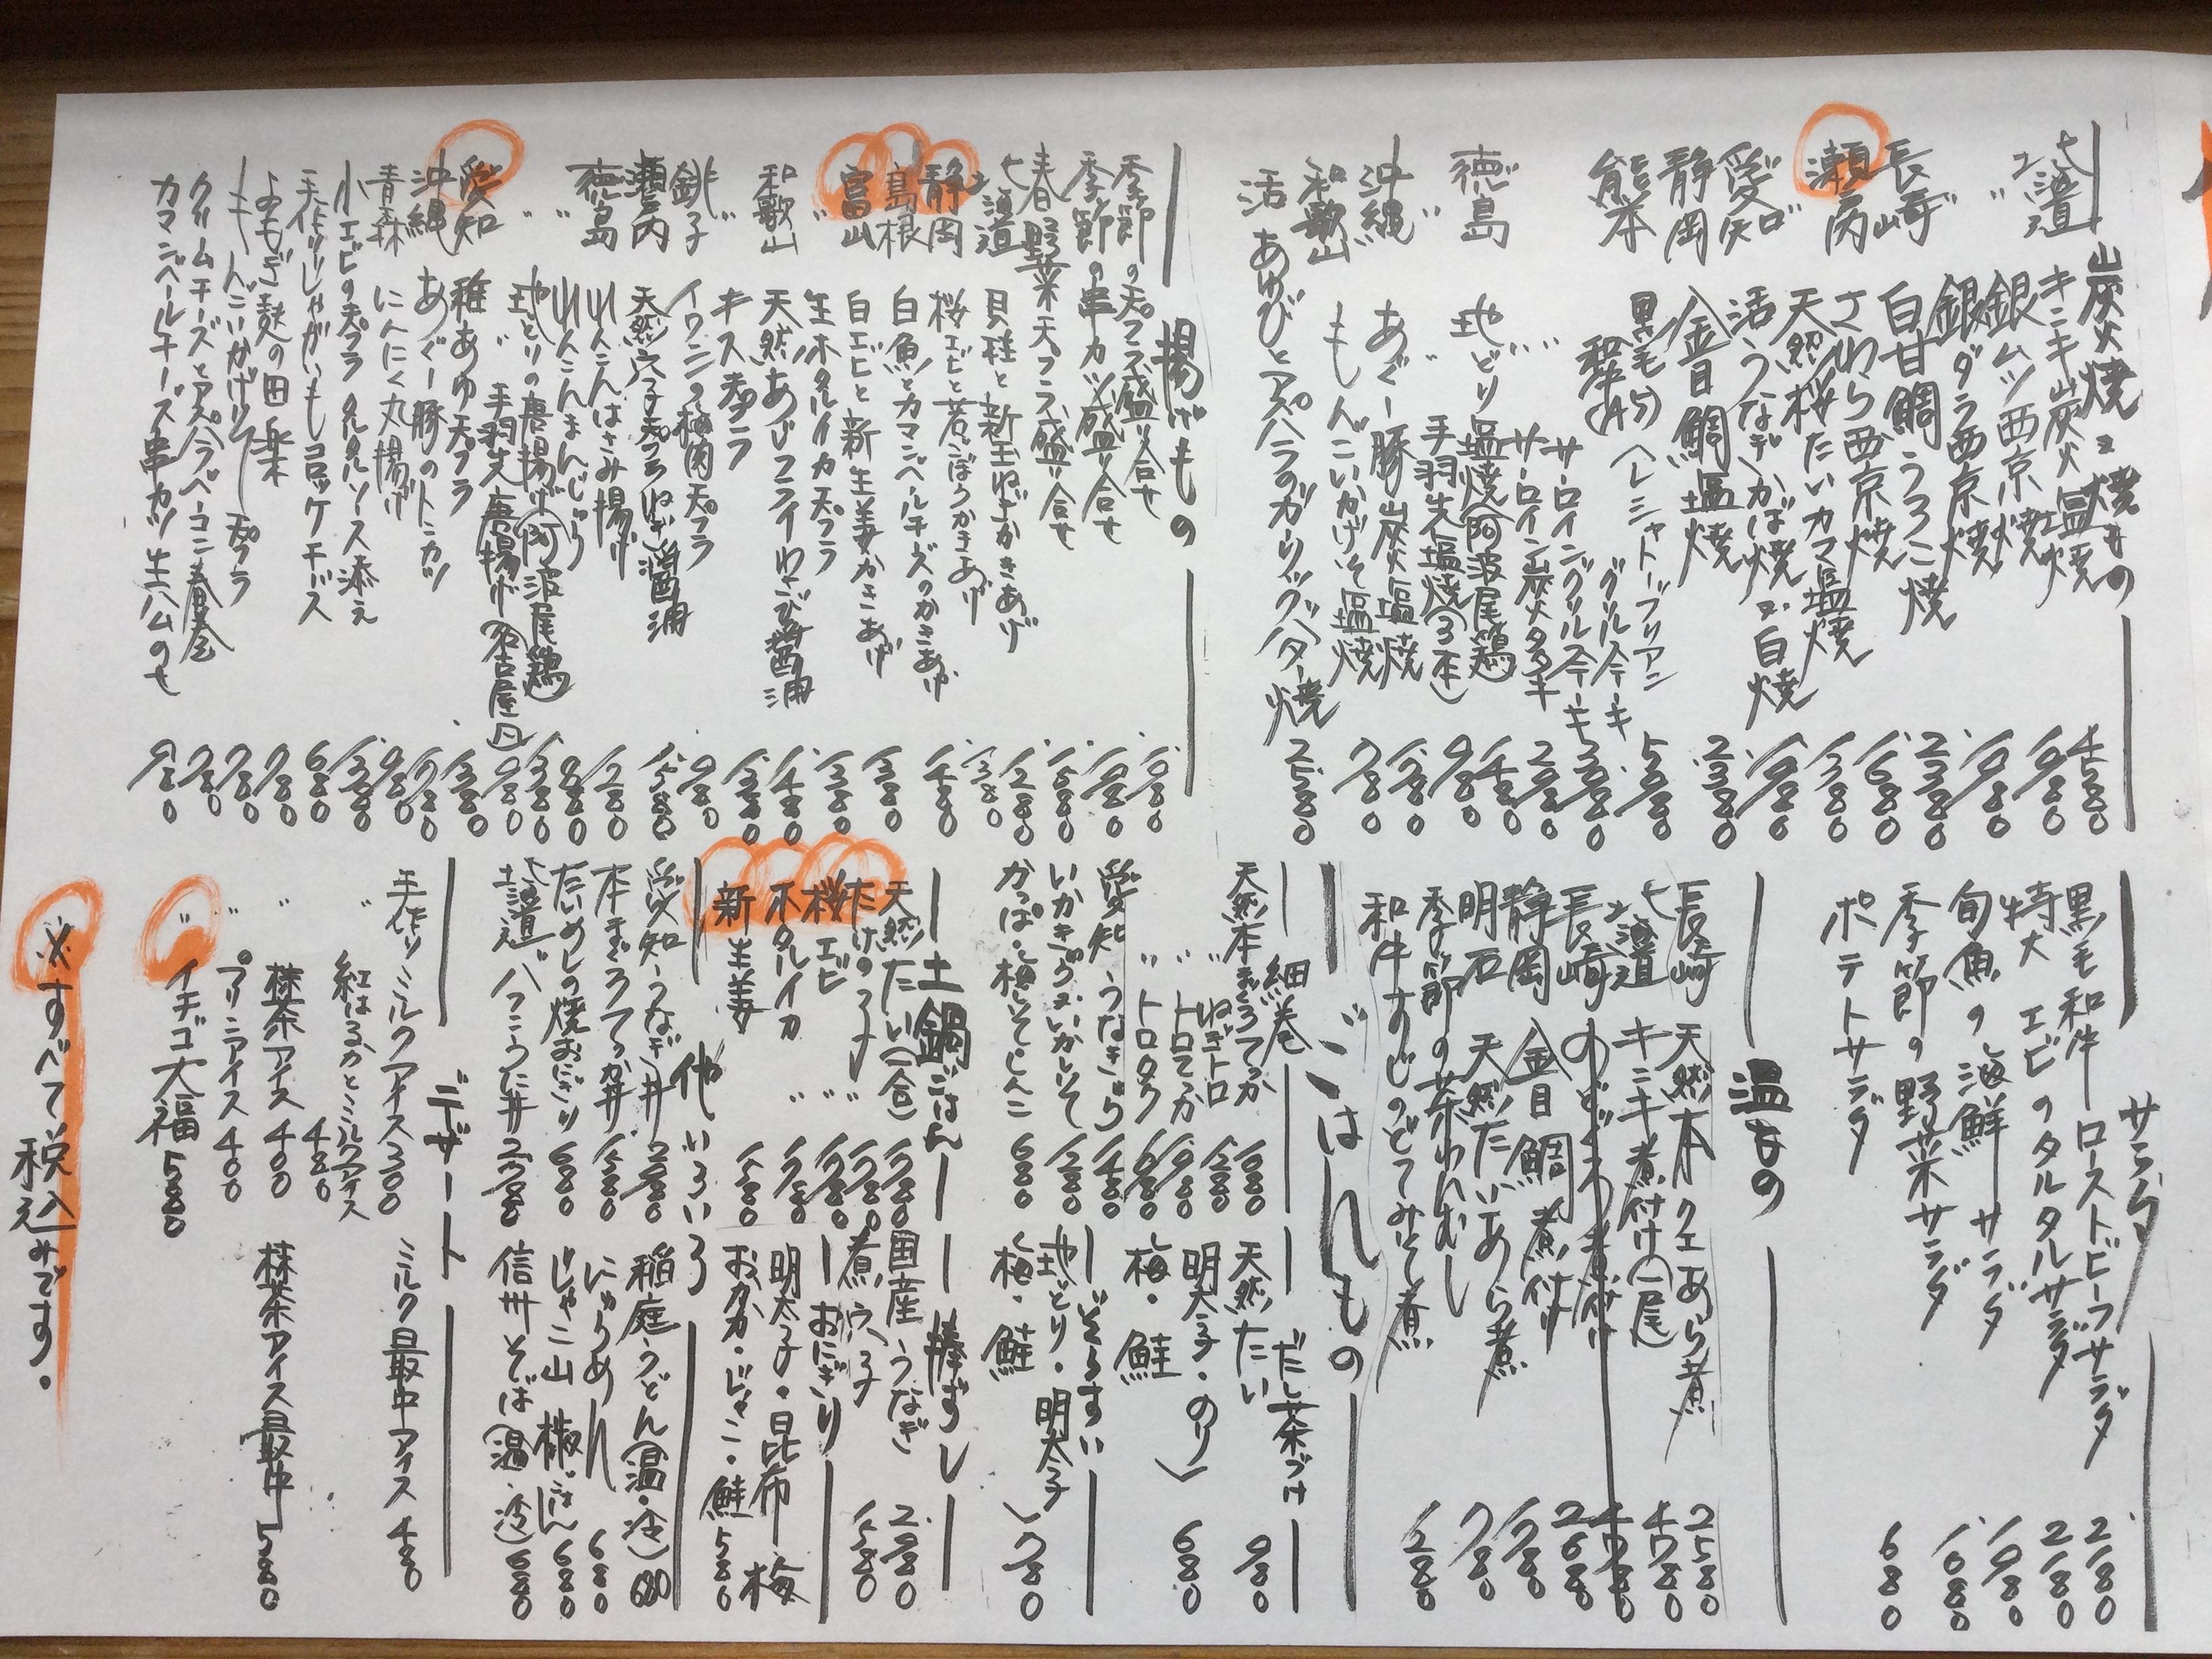 炭火焼き 焼きもの
北海道 キンキ炭火塩焼 4580
〃 銀ムツ西京焼 1980
銀ダラ西京焼 1980
長崎 白甘鯛うろこ焼 2380
瀬戸内 さわら西京焼 1680
〃 天然桜たいカマ塩焼 1380
愛知 活うなぎかば焼 白焼
静岡 金目鯛塩焼 2380
熊本 黒毛和牛(A5) シャトーブリアン 5980
サーロイングリルステーキ
サーロイン炭火タタキ
徳島 地どり塩焼(阿波尾鶏) 1480
〃 手羽先塩焼(3本) 980
沖縄 あぐー豚炭火塩焼
〃 もんごいかげそ塩焼 780
和歌山
活あわびとアスパラのガーリックバター焼 2580
揚げもの
季節の天プラ盛り合せ
季節の串カツ盛り合せ
春野菜天プラ盛り合せ
北海道 貝柱と新玉ねぎかきあげ
静岡 桜エビと若ごぼうかきあげ
島根 白魚とカマンベールチーズのかきあげ
富山 白エビと新生姜かきあげ
〃 生ホタルイカ天プラ
和歌山 天然あじフライわさび醤油
〃 キス天プラ
銚子 イワシの梅肉天プラ 980
瀬戸内 天然穴子天プラねぎ醤油 1580
徳島 れんこんはさみ揚げ
〃 れんこんまんじゅう 880
〃 地どりの唐揚げ(阿波尾鶏)
〃 手羽先唐揚げ(名古屋風) 980
愛知 稚あゆ天プラ 1380
沖縄 あぐー豚のトンカツ
青森 にんにく丸揚げ 980
小エビの天プラ タルタルソース添え
手作りじゃがいもコロッケチーズ 680
よもぎ麸の田楽 780
もんごいかげそ天プラ 780
クリームチーズとアスパラベーコン春巻 780
カマンベールチーズ串カツ生ハムのせ 980
サラダ
黒毛和牛ローストビーフサラダ 2180
特大エビのタルタルサラダ 2180
旬魚の海鮮サラダ 1980
季節の野菜サラダ 1080
ポテトサラダ 680
温もの
長崎 天然本クエあら煮 2580
北海道 キンキ煮付け(一尾) 4780
長崎 のどぐろ煮付け
静岡 金目鯛煮付け 2680
明石 天然たいあら煮
季節の茶わんむし 780
和牛すじのどてみそ煮 1280
ごはんもの
細巻
天然本まぐろてっか 1680
〃 ねぎトロ 1280
〃 トロてっか 1980
〃 トロタク
愛知 うなきゅう 1480
いかきゅう・いかしそ 1280
かっぱ・梅しそ・しんこ 680
だし茶づけ
天然たい 980
明太子・のり
梅・鮭 680
ぞうすい
地どり・明太子
梅・鮭 780
土鍋ごはん
天然たい(一合) 1780
たけのこ 〃 1780
桜エビ 〃
ホタルイカ 〃
新生姜 1580
棒ずし
国産うなぎ 2980
煮穴子 1580
おにぎり
明太子・昆布・梅
おかか・じゃこ・鮭 580
他いろいろ
愛知うなぎ丼
本まぐろてっか丼 1580
たいめしの焼おにぎり 680
北海道バフンうに丼
稲庭うどん(温・冷) 680
にゅうめん 680
じゃこ山椒ごはん 680
信州そば(温・冷) 680
デザート
手作りミルクアイス 300
〃 紅はるかとミルクアイス 480
〃 抹茶アイス 400
〃 プリンアイス 400
〃 イチゴ大福 580
ミルク最中アイス 480
抹茶アイス最中 580
※すべて税込みです。